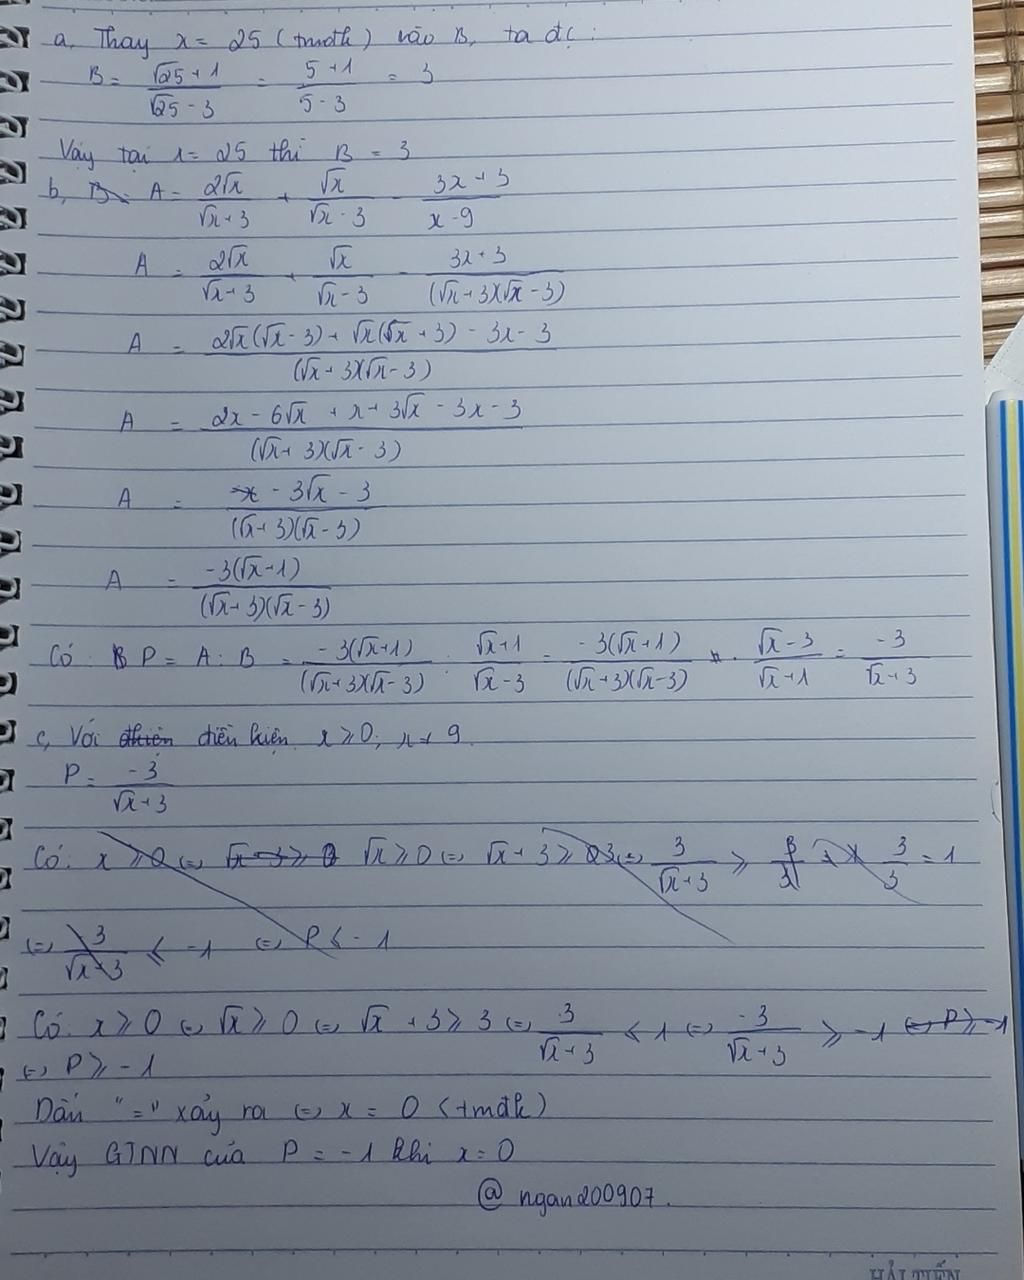 a, Thay x = 25 (tmđk) vào B, ta đc:
B = (√25 + 1)/(√25 - 3) = (5 + 1)/(5 - 3) = 3
Vậy tại x = 25 thì B = 3
b, B A = 2√x/(√x + 3) + √x/(√x - 3) - (3x + 3)/(x - 9)
A = 2√x/(√x + 3) + √x/(√x - 3) - (3x + 3)/((√x + 3)(√x - 3))
A = (2√x(√x - 3) + √x(√x + 3) - 3x - 3)/((√x + 3)(√x - 3))
A = (2x - 6√x + x + 3√x - 3x - 3)/((√x + 3)(√x - 3))
A = (- 3√x - 3)/((√x + 3)(√x - 3))
A = -3(√x + 1)/((√x + 3)(√x - 3))
Có: P = A : B = -3(√x + 1)/((√x + 3)(√x - 3)) : (√x + 1)/(√x - 3) = -3(√x + 1)/((√x + 3)(√x - 3)) . (√x - 3)/(√x + 1) = -3/(√x + 3)
c, Với điều kiện x ≥ 0; x ≠ 9
P = -3/(√x + 3)
Có: x ≥ 0 ⇔ √x - 3 ≥ 0 √x ≥ 0 ⇔ √x + 3 ≥ 3 ⇔ 3/(√x + 3) ≥ 3/3 = 1
⇔ -3/(√x + 3) ≤ -1 ⇔ P ≤ -1
Có: x ≥ 0 ⇔ √x ≥ 0 ⇔ √x + 3 ≥ 3 ⇔ 3/(√x + 3) ≤ 1 ⇔ -3/(√x + 3) ≥ -1 ⇔ P ≥ -1
⇔ P ≥ -1
Dấu "=" xảy ra ⇔ x = 0 (tmđk)
Vậy GTNN của P = -1 khi x = 0
@ ngan200907.
HẢI TIẾN